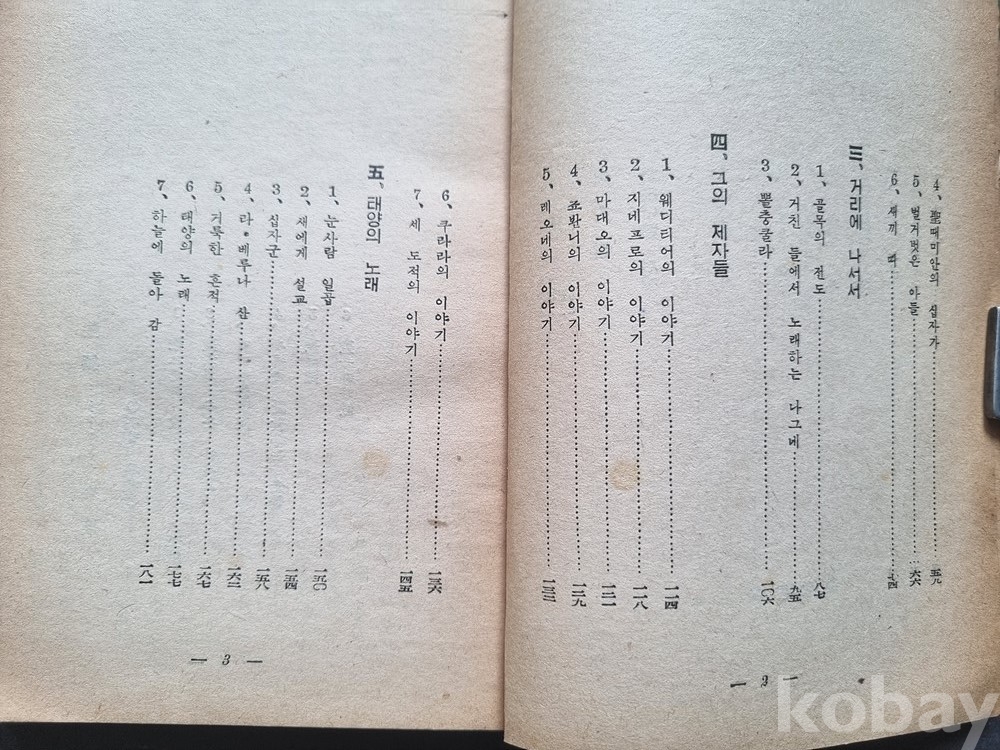 4、聖때미안의 십자가……五九
5、벌거벗은 아들……六六
6、새끼 띠……七四
三、거리에 나서서
1、골목의 전도……八七
2、거친 들에서 노래하는 나그네……九五
3、뽈충쿨라……一〇六
四、그의 제자들
1、웨디티어의 이야기……一一四
2、지네프로의 이야기……一一八
3、마대오의 이야기……一二一
4、죠봔니의 이야기……一二九
5、레오네의 이야기……一三三
— 2 —
6、쿠라라의 이야기……一三六
7、세 도적의 이야기……一四五
五、태양의 노래
1、눈사람 일곱……一五〇
2、새에게 설교……一五四
3、십자군……一五八
4、라•베루나 산……一六二
5、거룩한 흔적……一六七
6、태양의 노래……一七七
7、하늘에 돌아 감……一八一
— 3 —
kobay